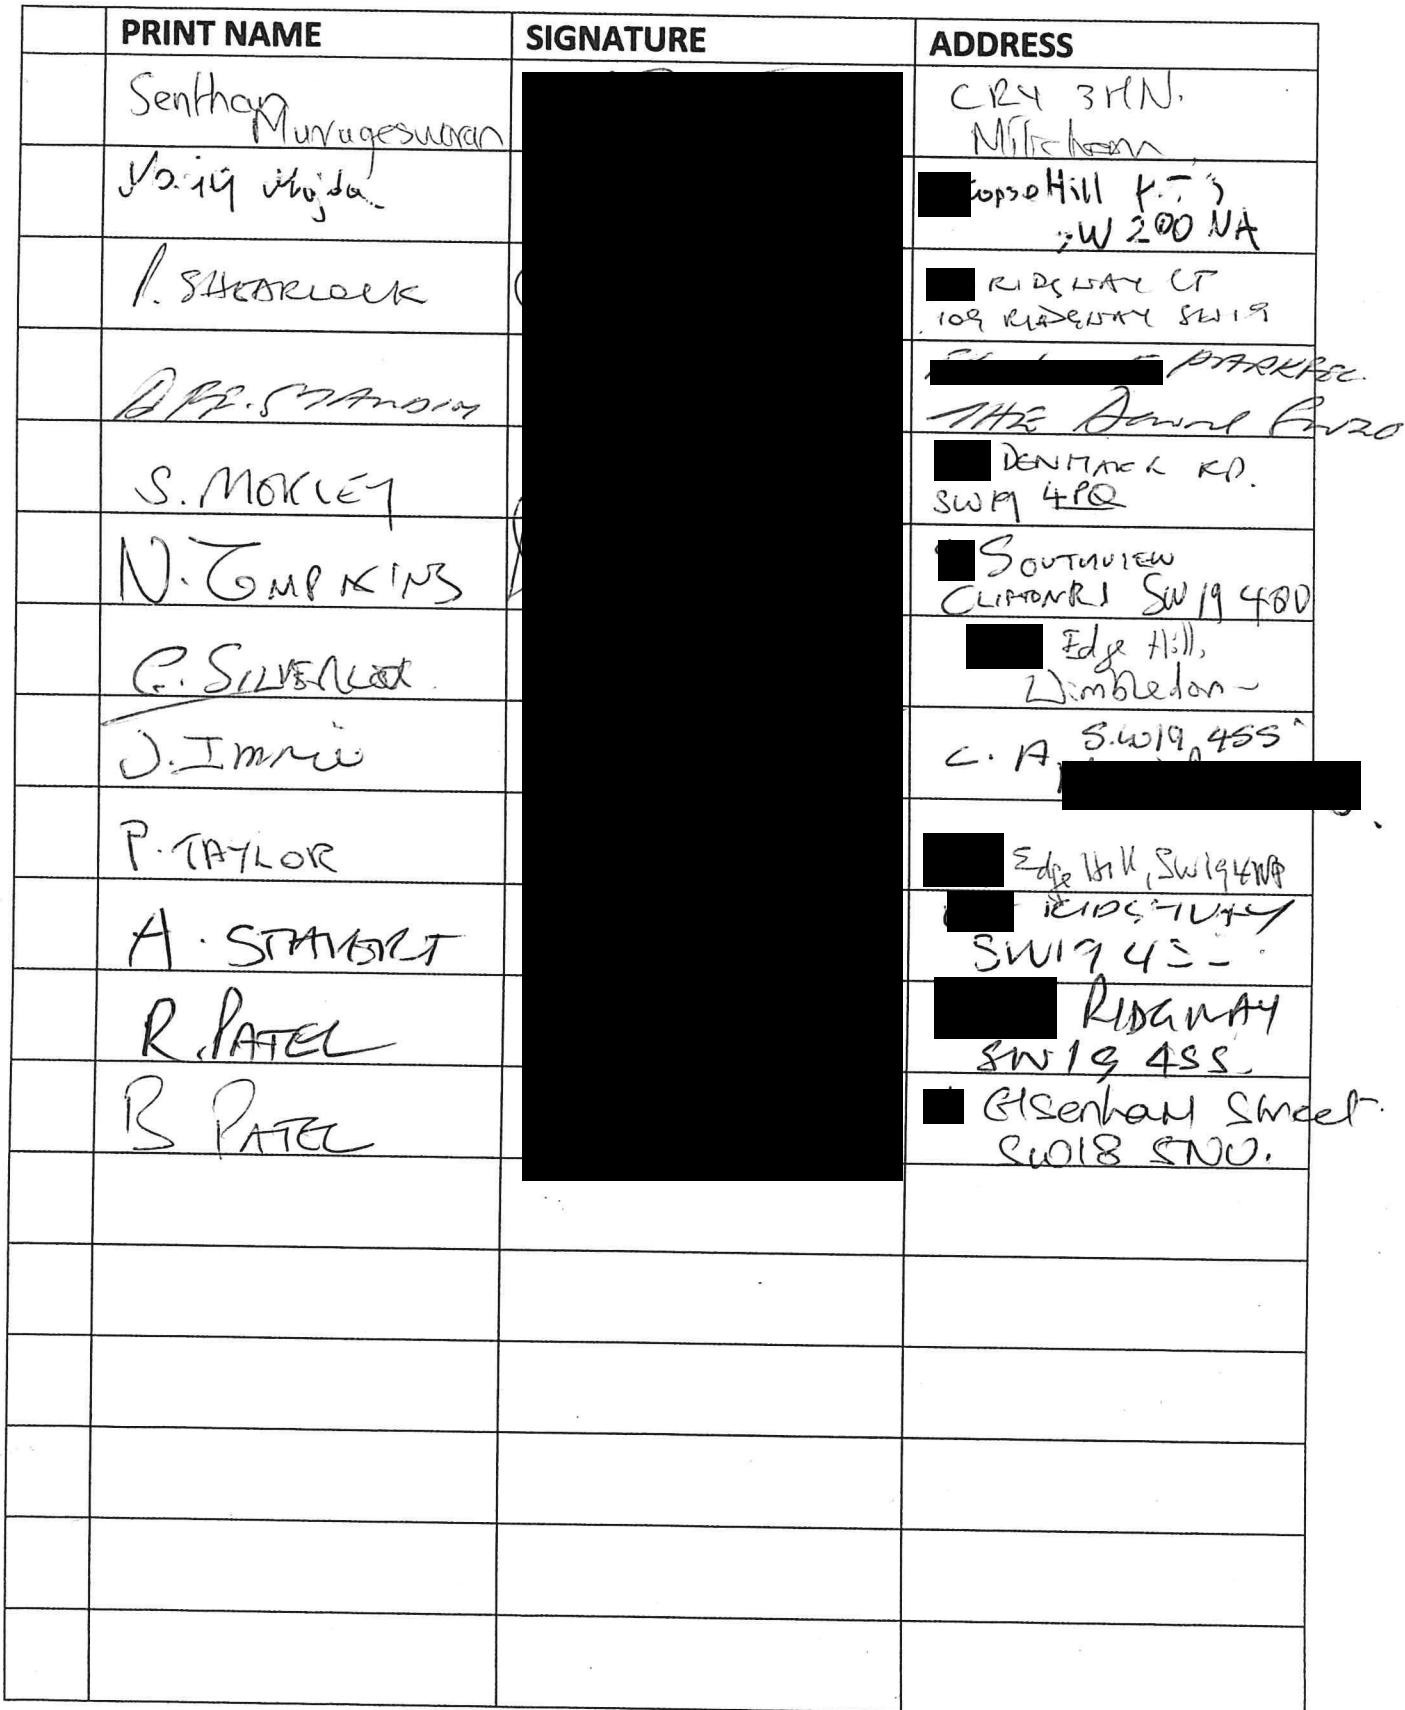 PRINT NAME SIGNATURE ADDRESS
Senthan CR4 3HN.
Murugeswaran Mitcham
Copse Hill
SW20 0NA
P. SHEARLOCK RIDGWAY CT
109 RIDGWAY SW19
THE
S. MORLEY DENMARK RD.
SW19 4PQ
N. TOMPKINS SOUTHVIEW
CLIFTON RD SW19 4QD
C. SILVERLOCK Edge Hill,
Wimbledon
S.W19, 4SS
J. Imrie C. A.
P. TAYLOR Edge Hill, SW19 4NP
A. RIDGWAY
SW19 4
R. PATEL RIDGWAY
SW19 4SS
B PATEL Elsenham Street.
SW18 5NU.